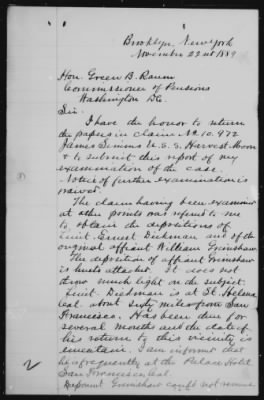 Brooklyn, New York
November 22nd 1889
Hon. Green B. Raum
Commissioner of Pensions
Washington D.C.
Sir.
I have the honor to return
the papers in claim No. 10.972
James Simms U.S.S. Harvest Moon
& to submit this report of my
examination of the case.
Notice of further examination is
waived.
The claim having been examined
at other points was referred to me
to obtain the depositions of
Lieut. Ernest Dickman and of the
original affiant William Grimshaw.
The deposition of affiant Grimshaw
is hereto attached. It does not
throw much light on the subject.
Lieut. Dickman is at St. Helena
Cal. about sixty miles from San
Francisco. Has been due for
several months and the date of
his return to this vicinity is
uncertain. I am informed that
he is frequently at the Palace Hotel
San Francisco Cal.
Deponent Grimshaw could not
2